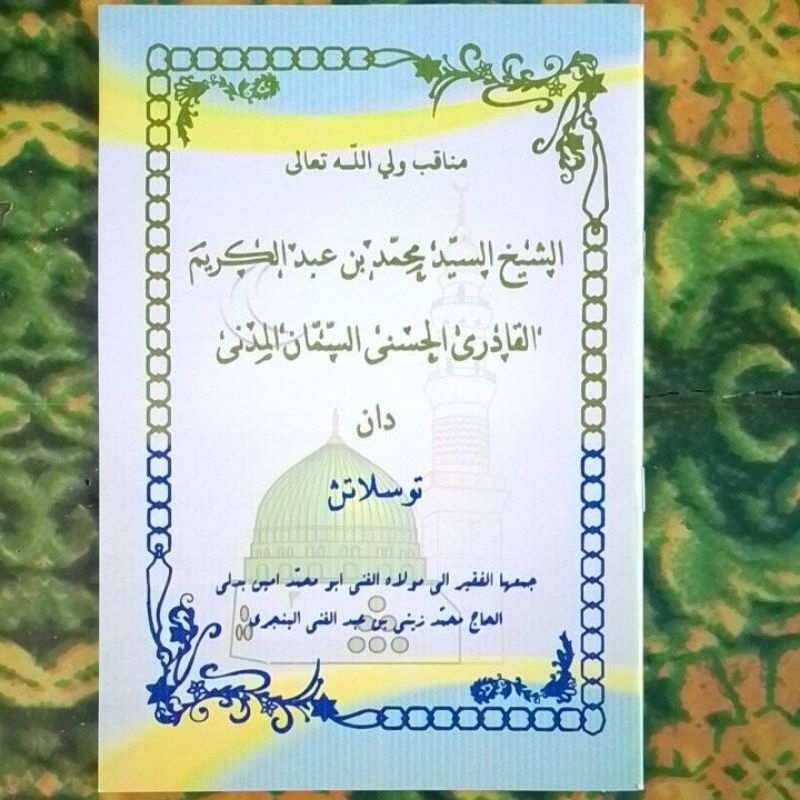 مناقب ولي اللّه تعالى
الشيخ السيّد محمّد بن عبد الكريم
القادرى الحسنى السمّان المدنى
دان
توسلاتڽ
جمعها الفقير الى مولاه الغنى ابو محمّد امين بدلى
الحاج محمّد زينى بن عبد الغنى البنجرى